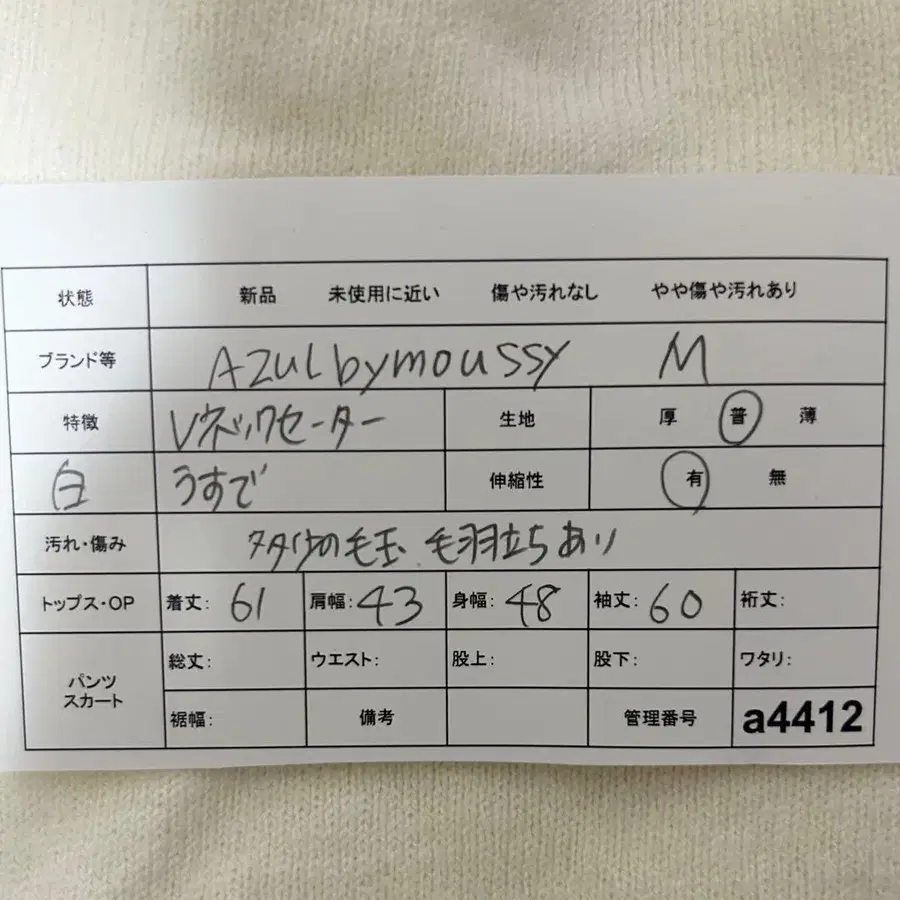 状態 新品 未使用に近い 傷や汚れなし やや傷や汚れあり
ブランド等 AZUL by moussy M
特徴 Vネックセーター 生地 厚 普 薄
白 うすで 伸縮性 有 無
汚れ・傷み 多少の毛玉 毛羽立ちあり
トップス・OP 着丈: 61 肩幅: 43 身幅: 48 袖丈: 60 裄丈:
パンツ スカート 総丈: ウエスト: 股上: 股下: ワタリ:
裾幅: 備考 管理番号 a4412